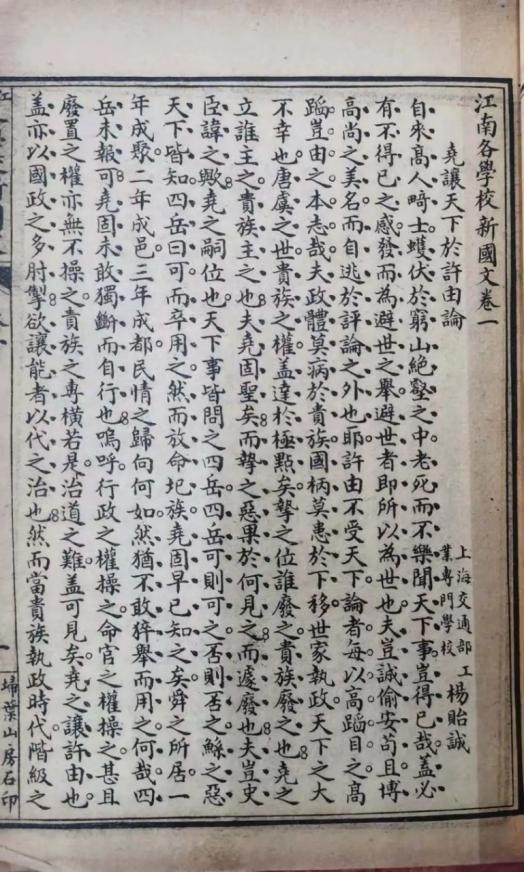 江南各學校新國文卷一
堯讓天下於許由論
上海交通部工業專門學校 楊貽誠
自來高人畸士蠖伏於窮山絕壑之中老死而不樂聞天下事豈得已哉蓋必
有不得已之感發而為避世之舉避世者即所以為世也夫豈誠偷安苟且博
高尚之美名而自逃於評論之外也耶許由不受天下論者每以高蹈目之高
蹈豈由之本志哉夫政體莫病於貴族國柄莫患於下移世家執政天下之大
不幸也唐虞之世貴族之權蓋達於極點矣摯之位誰廢之貴族廢之也堯之
立誰主之貴族主之也夫堯固聖矣而摯之惡果於何見之而遽廢也夫豈史
臣諱之歟堯之嗣位也天下事皆問之四岳四岳可則可之否則否之鯀之惡
天下皆知四岳曰可而卒用之然而放命圮族堯固早已知之矣舜之所居一
年成聚二年成邑三年成都民情之歸向何如然猶不敢猝舉而用之何哉四
岳未報可堯固未敢獨斷而自行也嗚呼行政之權操之命官之權操之甚且
廢置之權亦無不操之貴族之專橫若是治道之難蓋可見矣堯之讓許由也
蓋亦以國政之多肘掣欲讓能者以代之治也然而當貴族執政時代階級之
江
一
埽葉山房石印